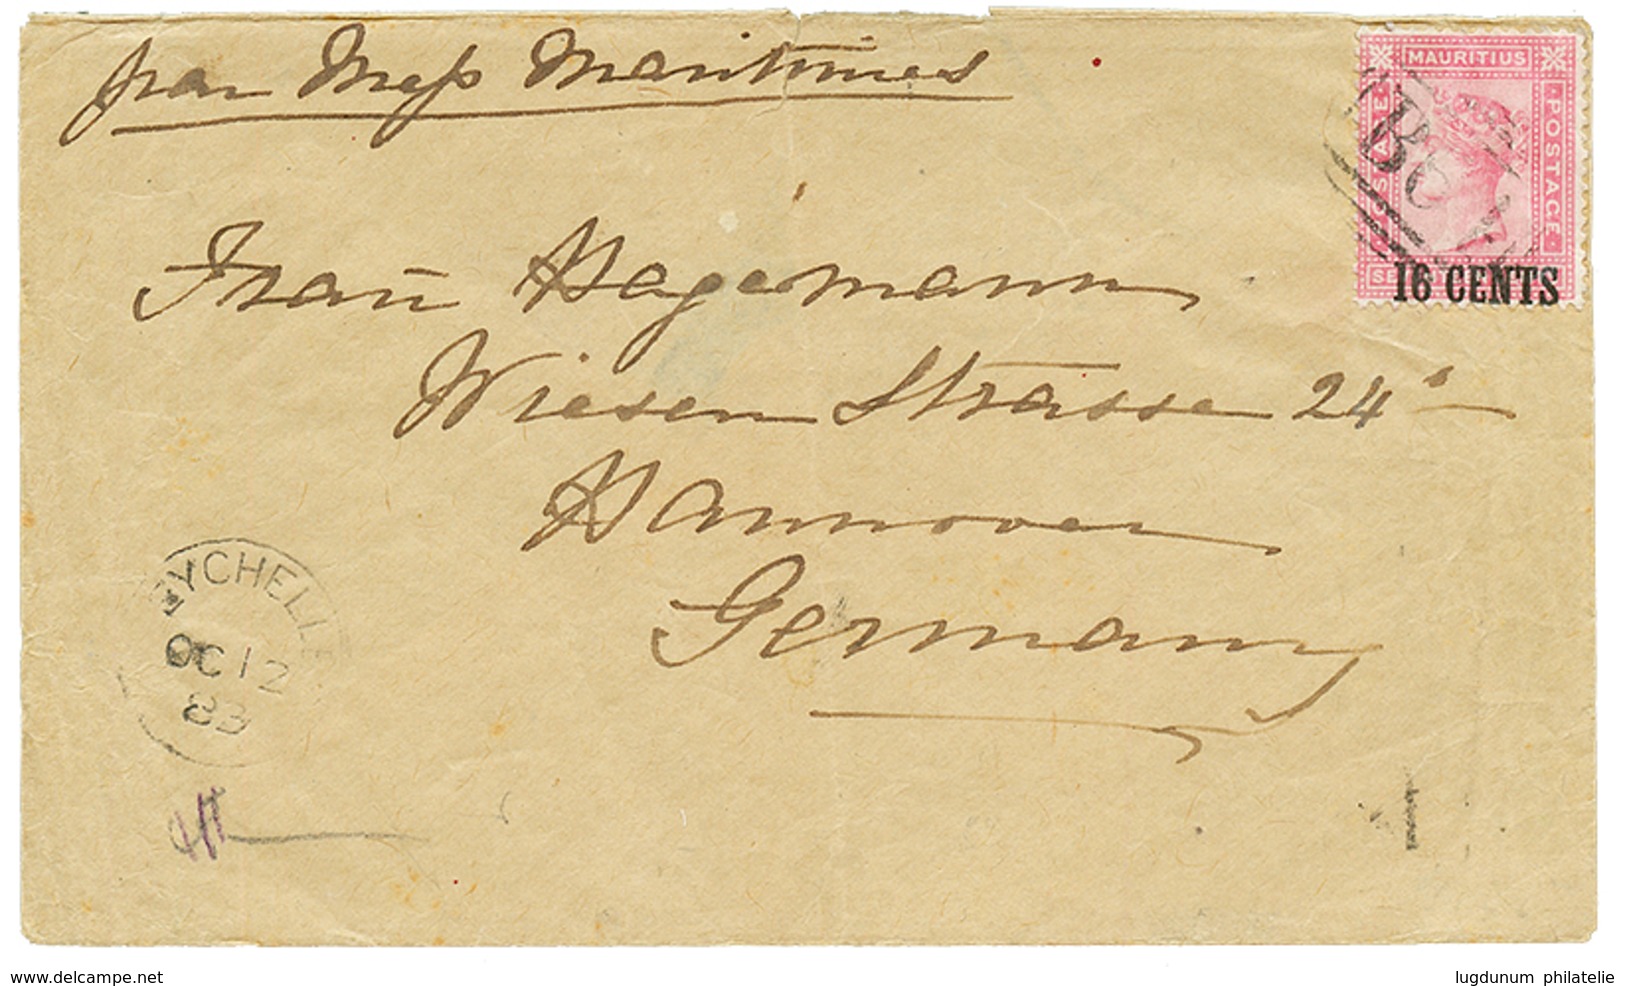 par Mess Maritimes
MAURITIUS
POSTAGE
B64
16 CENTS
Frau Hagemann
Wiesen Strasse 24
Hannover
Germany
SEYCHELLES
OC 12
83
www.delcampe.net
lugdunum philatelie